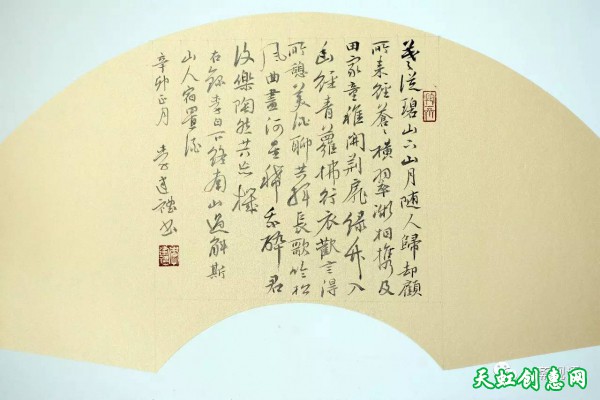 暮從碧山下山月随人歸却顧
所来經蒼々横翠微相携及
田家童稚開荆扉绿竹入
幽經青蘿拂行衣歡言得
所憩美酒聊共挥長歌吟松
风曲盡河星稀我醉君
復樂陶然共忘機
右録李白下终南山過斛斯
山人宿置酒
辛卯正月 李道书
天虹创意网